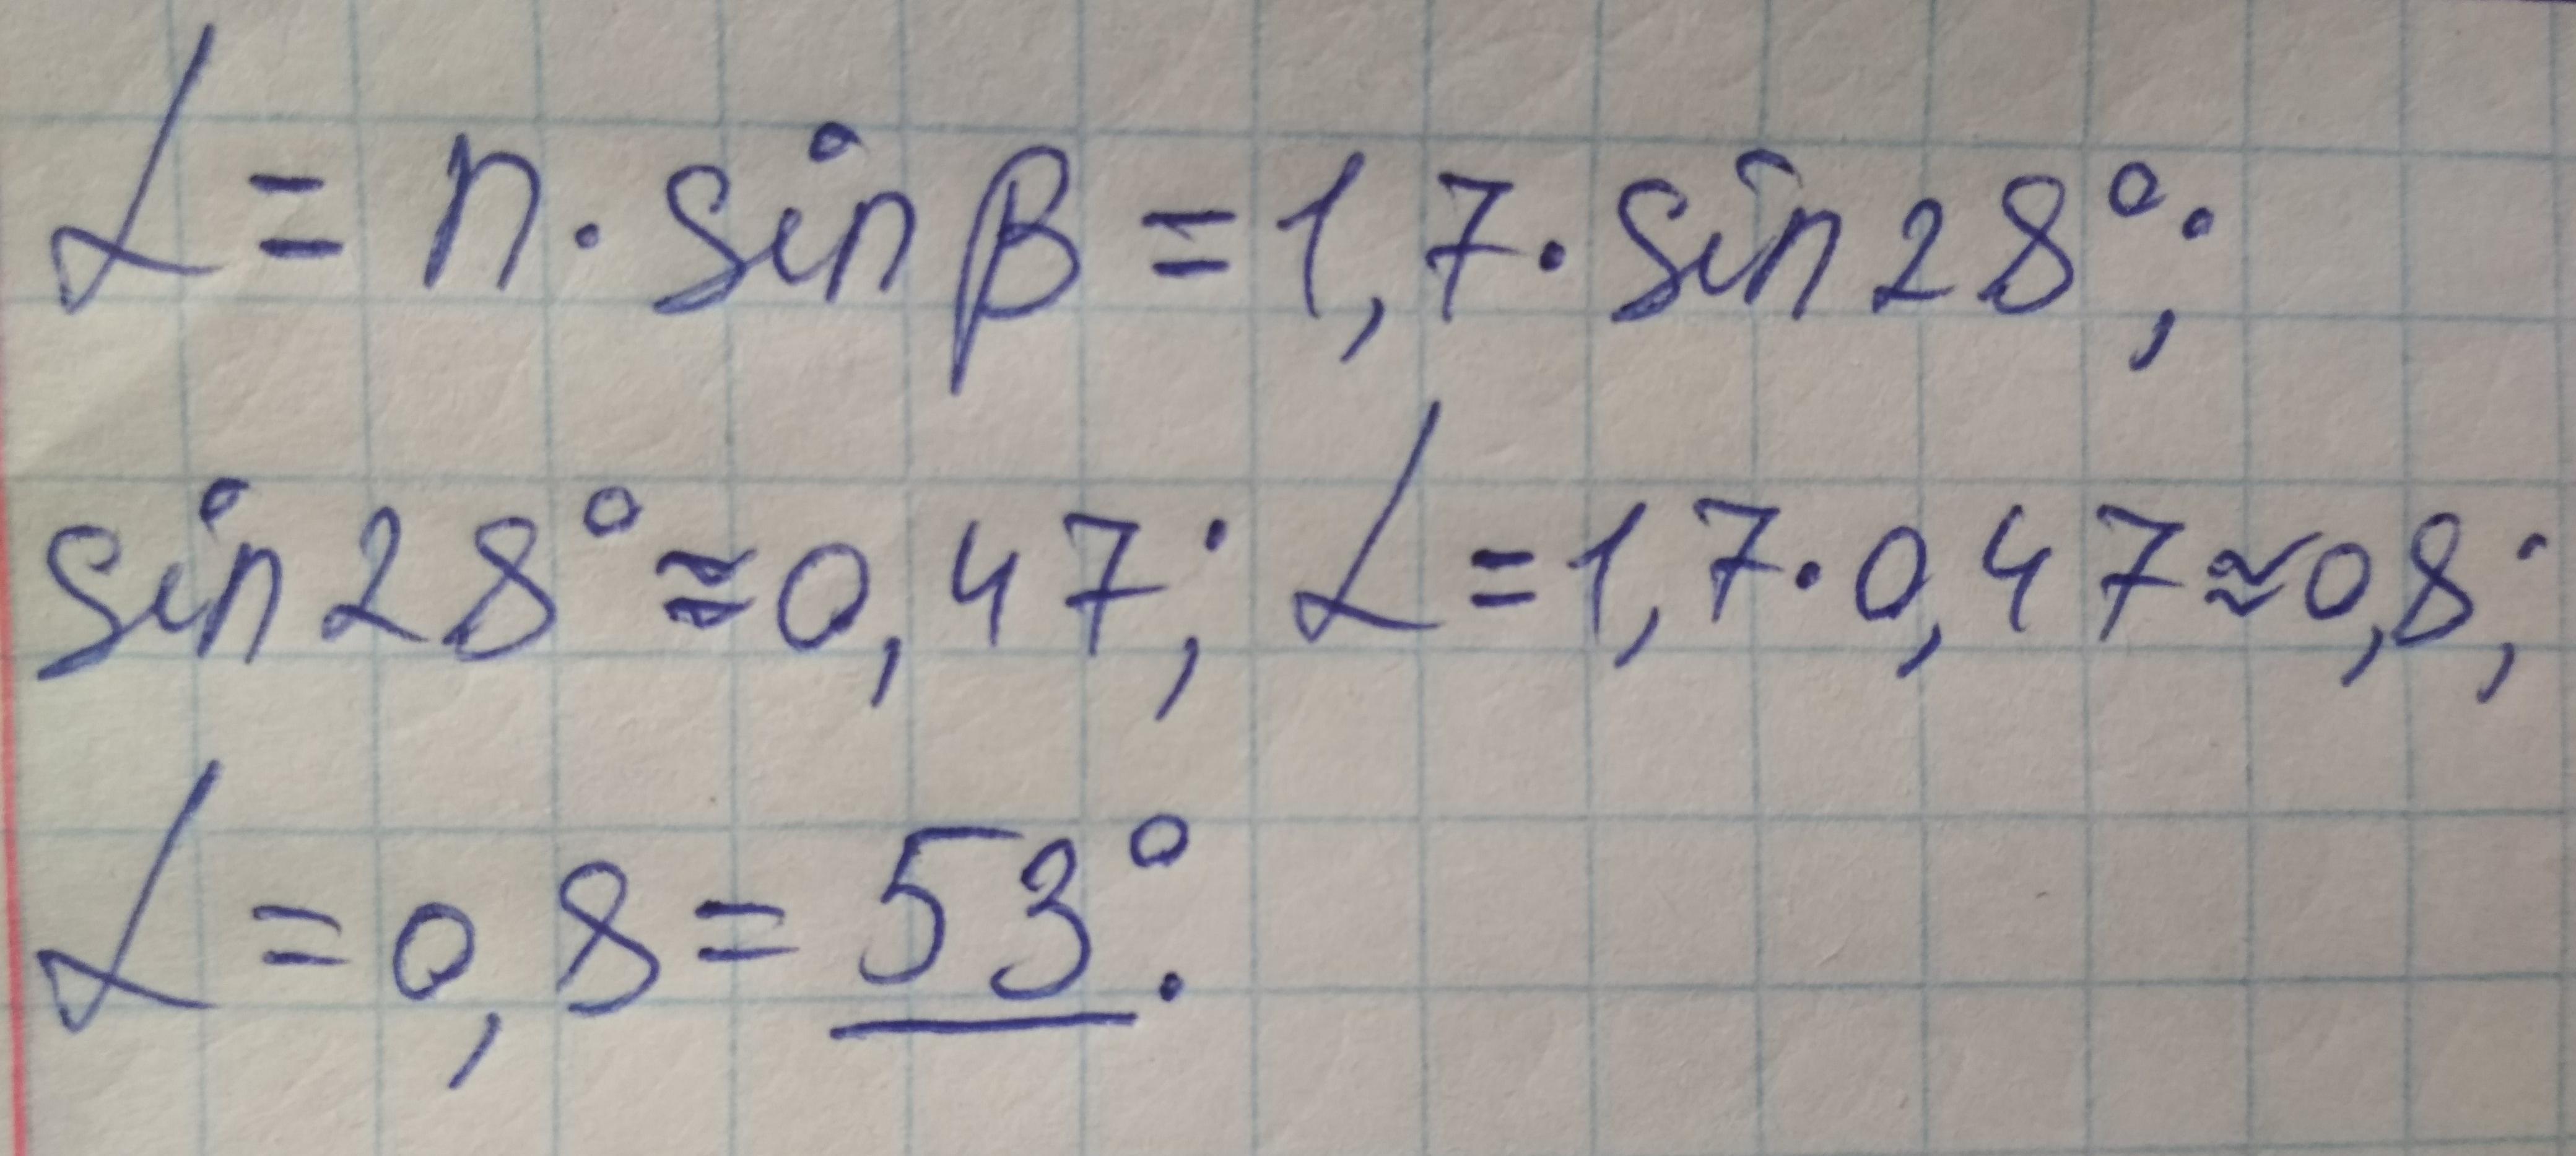 α = n · sin β = 1,7 · sin 28°;
sin 28° ≈ 0,47; α = 1,7 · 0,47 ≈ 0,8;
α = 0,8 = 53°.